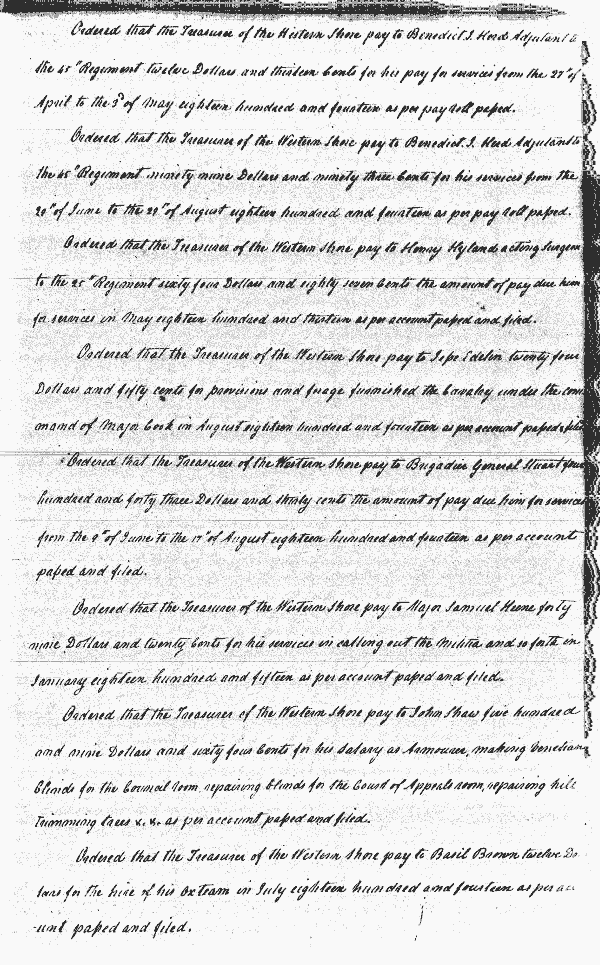 Ordered that the Treasurer of the Western Shore pay to Benedict I. Herd Adjutant to
the 45th Regiment twelve Dollars and thirteen Cents for his pay for services from the 27th of
April to the 3d of May eighteen hundred and fourteen as per pay roll passed.
Ordered that the Treasurer of the Western Shore pay to Benedict I. Herd Adjutant to
the 45th Regiment ninety nine Dollars and ninety three Cents for his services from the
20th of June to the 29th of August eighteen hundred and fourteen as per pay roll passed.
Ordered that the Treasurer of the Western Shore pay to Henry Hyland acting Surgeon
to the 25th Regiment sixty four Dollars and eighty seven Cents the amount of pay due him
for services in May eighteen hundred and thirteen as per account passed and filed.
Ordered that the Treasurer of the Western Shore pay to Jesse Edelin twenty four
Dollars and fifty cents for provisions and forage furnished the Cavalry under the com
mand of Major Cook in August eighteen hundred and fourteen as per account passed & filed
Ordered that the Treasurer of the Western Shore pay to Brigadier General Stuart four
hundred and forty three Dollars and thirty cents the amount of pay due him for services
from the 9th of June to the 17th of August eighteen hundred and fourteen as per account
passed and filed.
Ordered that the Treasurer of the Western Shore pay to Major Samuel Keene forty
nine Dollars and twenty Cents for his services in calling out the Militia and so forth in
January eighteen hundred and fifteen as per account passed and filed.
Ordered that the Treasurer of the Western Shore pay to John Shaw five hundred
and nine Dollars and sixty four Cents for his Salary as Armourer, making Venetian
blinds for the Council room, repairing blinds for the Court of Appeals room, repairing hill
Trimming trees &. &. as per account passed and filed.
Ordered that the Treasurer of the Western Shore pay to Basil Brown twelve Do
lars for the hire of his Ox team in July eighteen hundred and fourteen as per acc
unt passed and filed.